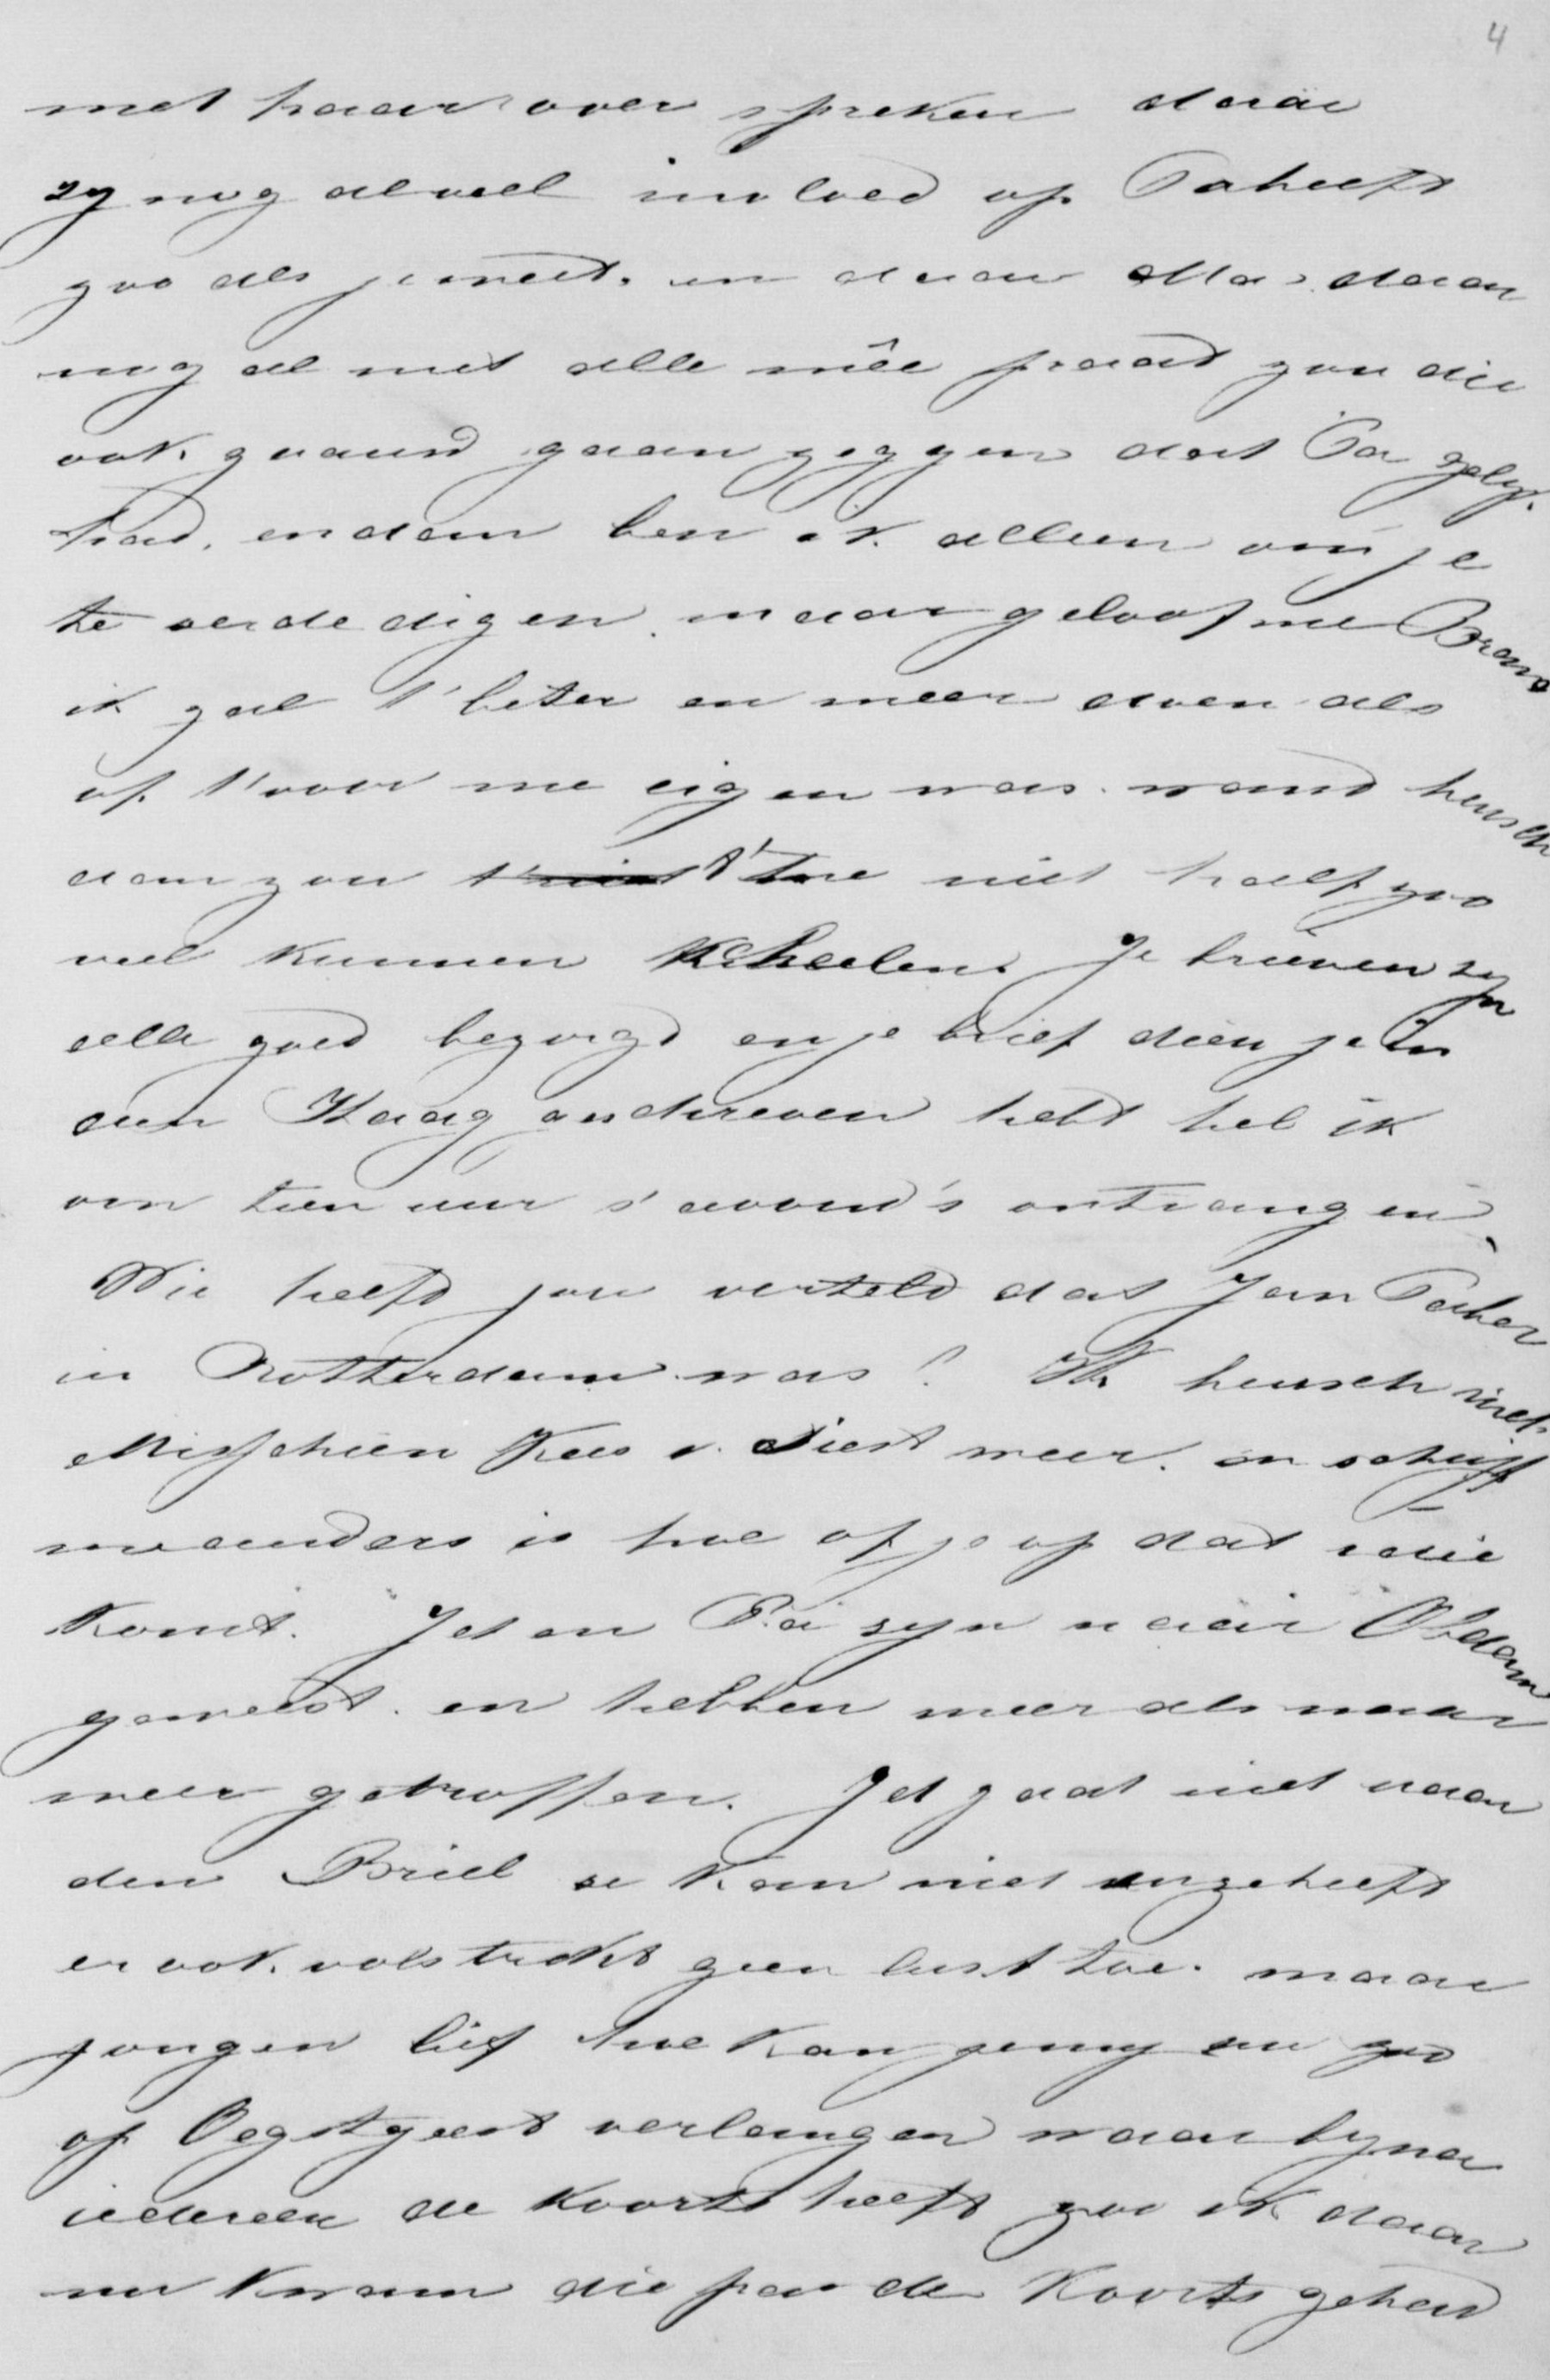 4
met haar over spreken daar
zy nog al veel invloed op Pa heeft
zoo als je weet. en daar Ma daar
nog al met alle mêe praat zou die
ook gaauw gaan zeggen dat Pa gelyk
had, en dan ben ik alleen om je
te verdedigen. maar geloof me Bram
ik zal 't beter en meer doen als
of 't voor me eigen was. want heusch
dan zou 't me niet half zoo
veel kunnen scheelen. Je brieven zyn
alle goed bezorgd en je brief dien je in
den Haag geschreven hebt heb ik
om tien uur s'avond's ontvangen.
Wie heeft jou verteld dat Jan Pacher
in Rotterdam was? Ik heusch niet
Misschien Kees v. Diest weer. en schryf
me anders is hoe of je op dat idée
komt. Jet en Pa zyn naar Obdam
geweest. en hebben meer als naar
weer getroffen. Jet gaat niet naar
den Briel ze kan niet en ze heeft
er ook volstrekt geen lust toe. maar
jongen lief hoe kan je my nu zoo
op Oegstgeest verlangen waar byna
iedereen de koorts heeft zoo ik daar
nu kwam die pas de koorts gehad